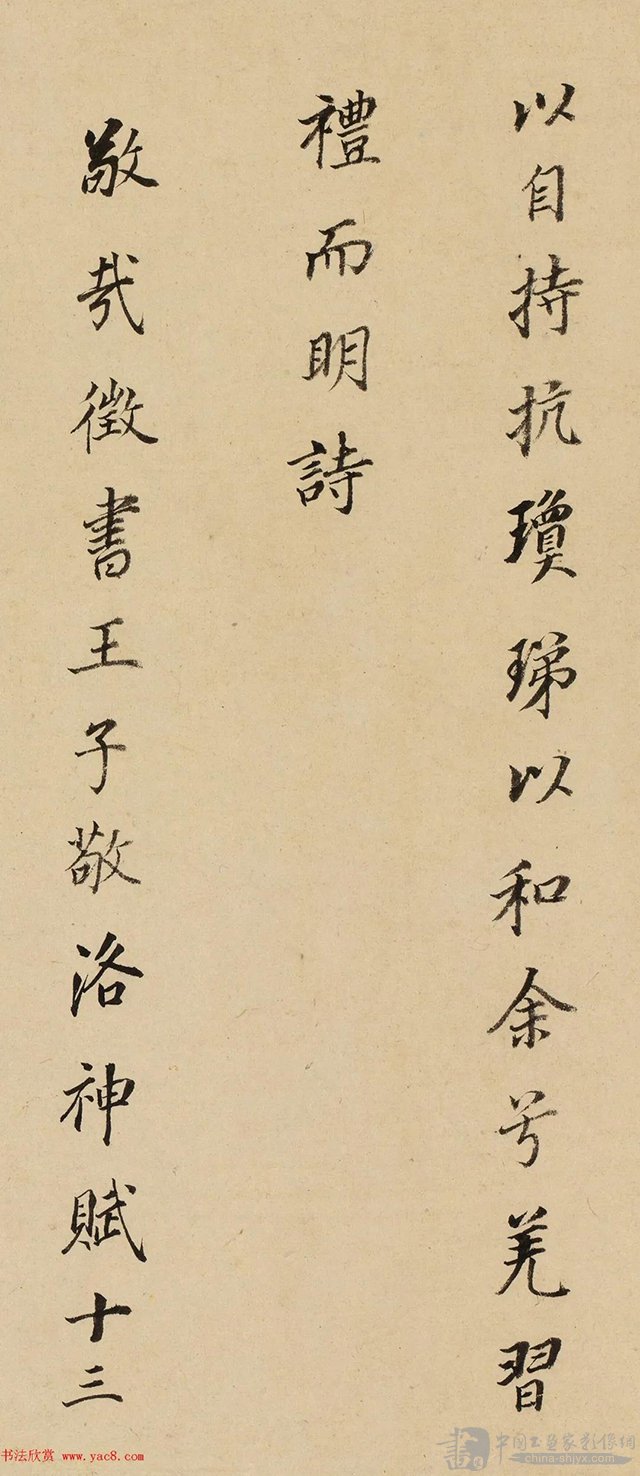 以自持抗瓊珶以和余兮羌習
禮而明詩
敬哉徵書王子敬洛神賦十三
书法欣赏 www.yac8.com
china-shjyx.com